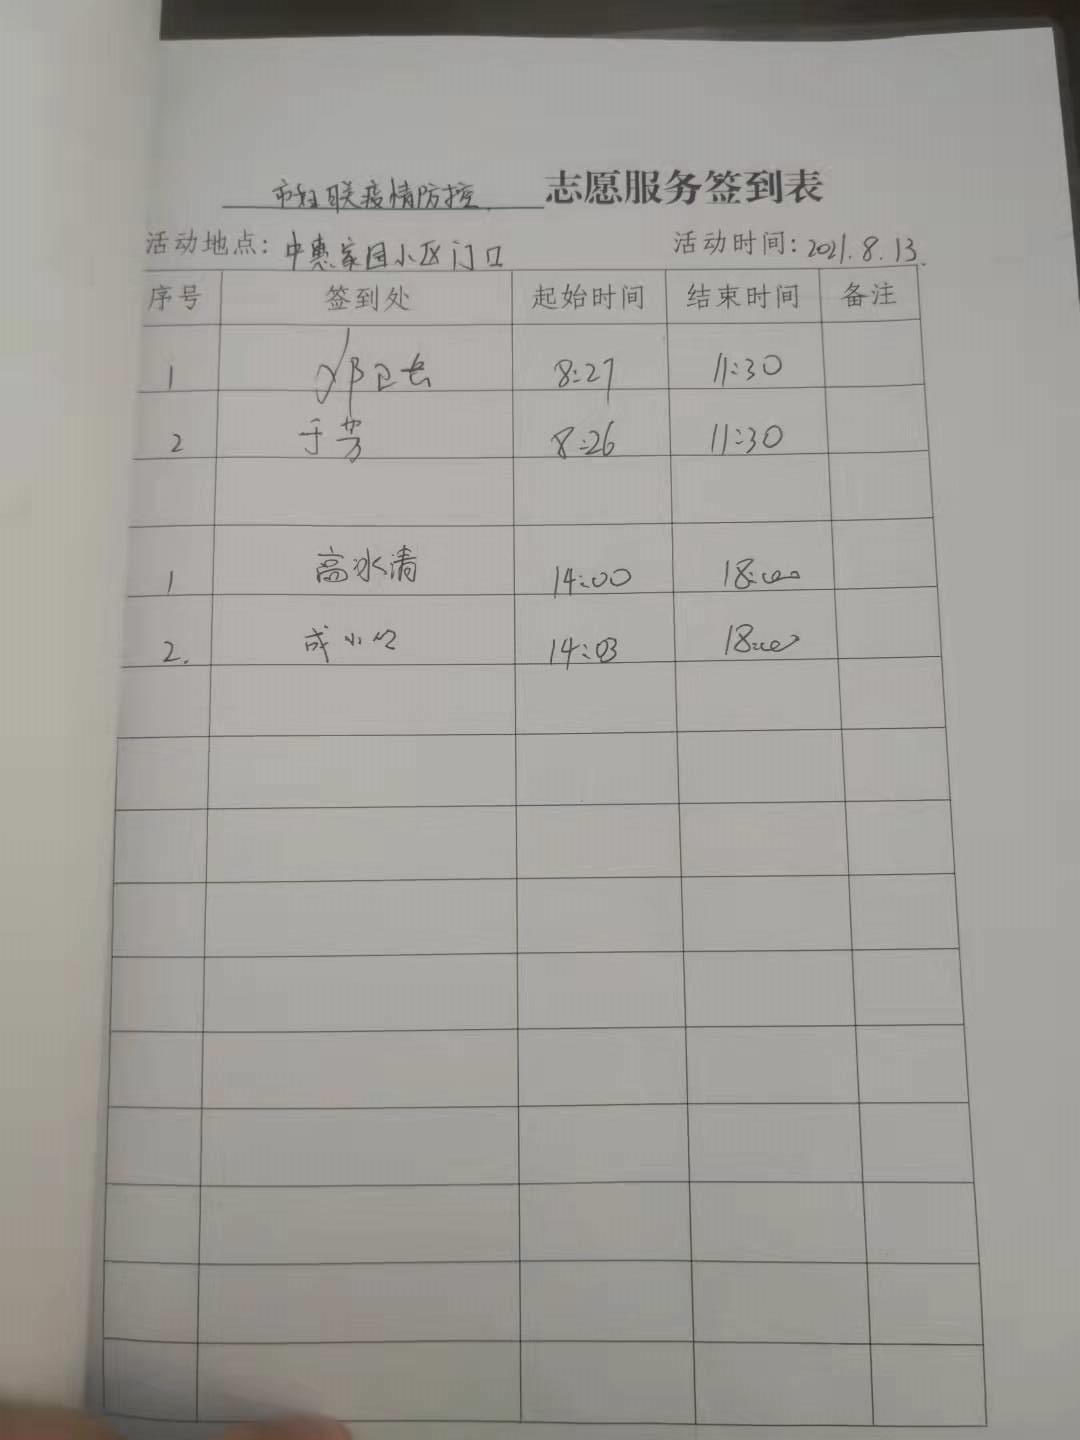 市社联疫情防控 志愿服务签到表
活动地点: 中惠家园小区门口 活动时间: 2021.8.13.
序号 签到处 起始时间 结束时间 备注
1 邓卫 8:27 11:30
2 于芳 8:26 11:30
1 高冰清 14:00 18:00
2. 成小 14:03 18:00